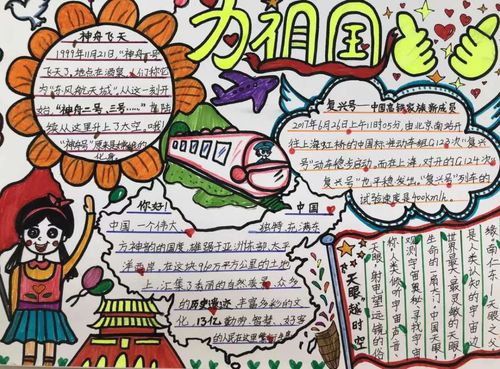 为祖国
神舟飞天
1999年11月21日,“神舟一号”
飞天了,地点在酒泉,人们称它
为“东风航天城”从这一刻开
始,“神舟二号,三号……”陆陆
续从这里升上了太空,哦!
“神舟号”原来是神奇的
化身
复兴号——中国高铁家族新成员
2017年6月26日上午11时05分,由北京南站开
往上海虹桥的中国标准动车组G123次“复兴
号”动车稳去启动,而在上海,对开的G12次
复兴号”也平稳发出,“复兴号”列车的
试验速度是400km/h.
你好! 中国
中国一个伟大 独特在满东
方神韵的国度,雄踞于亚洲东部,太平
洋西岸,在这块960万平方公里的土地
上,汇集了秀丽的自然美景,众多
的历史遗迹 丰富多彩的文
化,13亿勤劳,智慧,好客
的人民在这里
天眼越时空
缘,南仁东,天眼,父
是人类认知的宇宙边
世界最大最灵敏的天眼,
生命的一扇窗门,中国天眼,
观测宇宙奥秘,寻找宇宙
称,人类倾听宇宙声音,
天眼,射电望远镜的俗